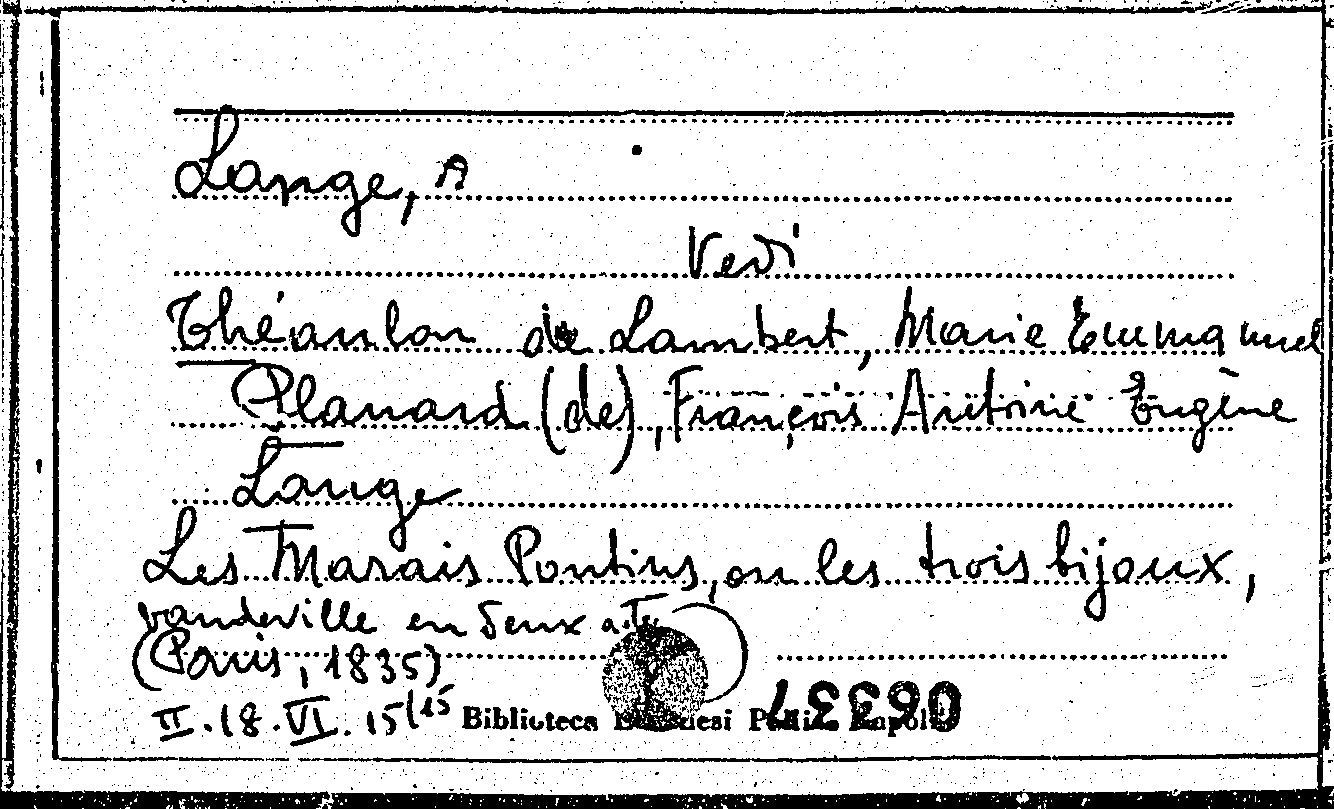 Lange, A
Vedi
Théaulon de Lambert, Marie Emmanuel
Planard (de), François Antoine Eugène
Lange
Les Marais Pontins, ou les trois bijoux,
vaudeville en deux actes
(Paris, 1835)
II.18.VI.15/15 Biblioteca Lucchesi Palli Napoli